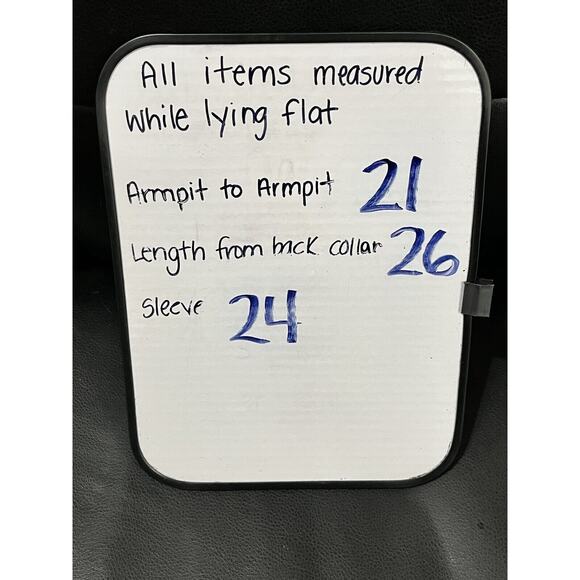 All items measured
while lying flat
Armpit to Armpit 21
Length from back collar 26
Sleeve 24